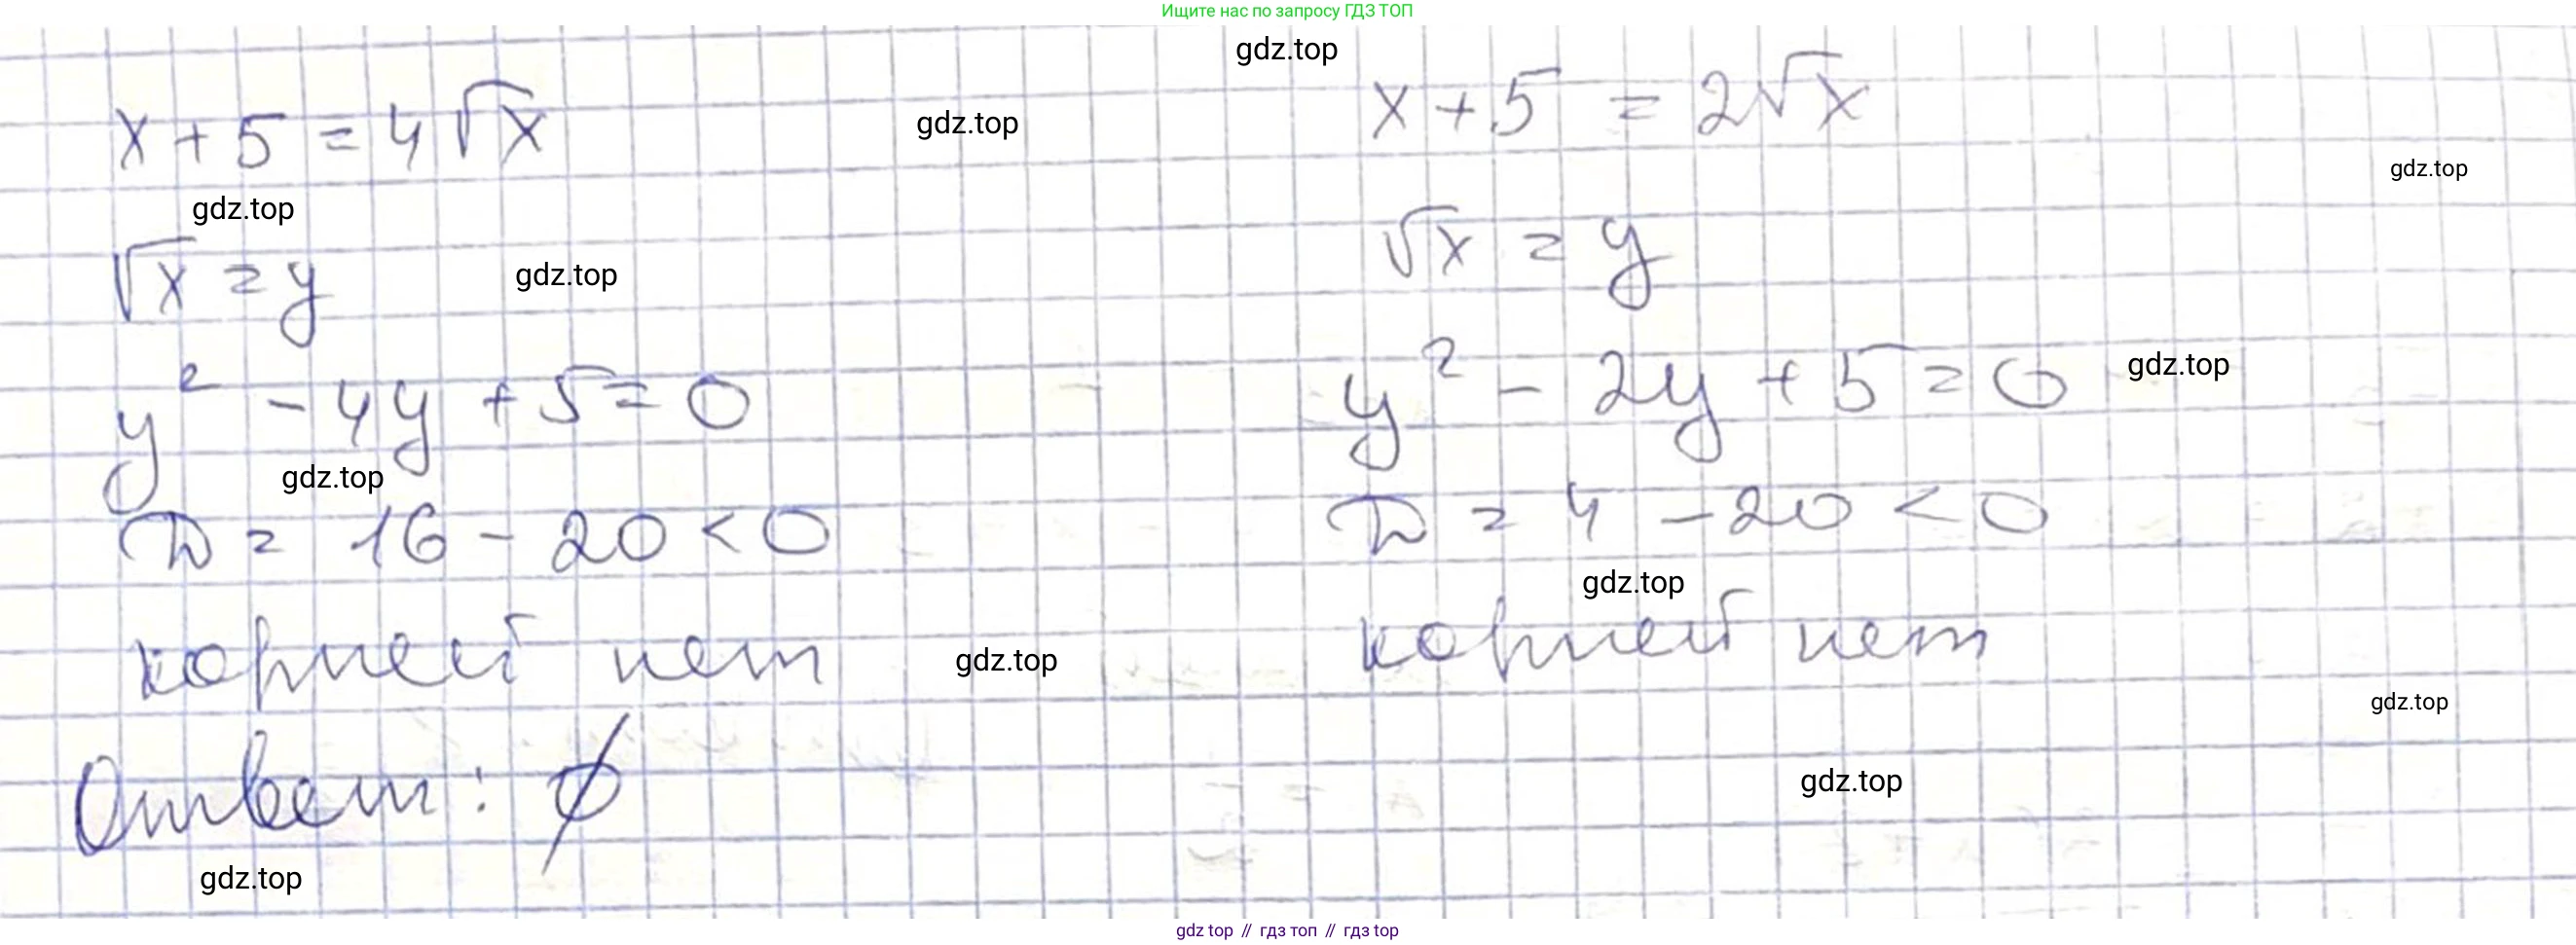 Ищите нас по запросу ГДЗ ТОП
gdz.top
x + 5 = 4√x
gdz.top
gdz.top
√x = y
gdz.top
y² - 4y + 5 = 0
gdz.top
D = 16 - 20 < 0
корней нет
gdz.top
Ответ: ∅
gdz.top
x + 5 = 2√x
gdz.top
√x = y
y² - 2y + 5 = 0
gdz.top
D = 4 - 20 < 0
gdz.top
корней нет
gdz.top
gdz.top
gdz top // гдз топ // гдз top